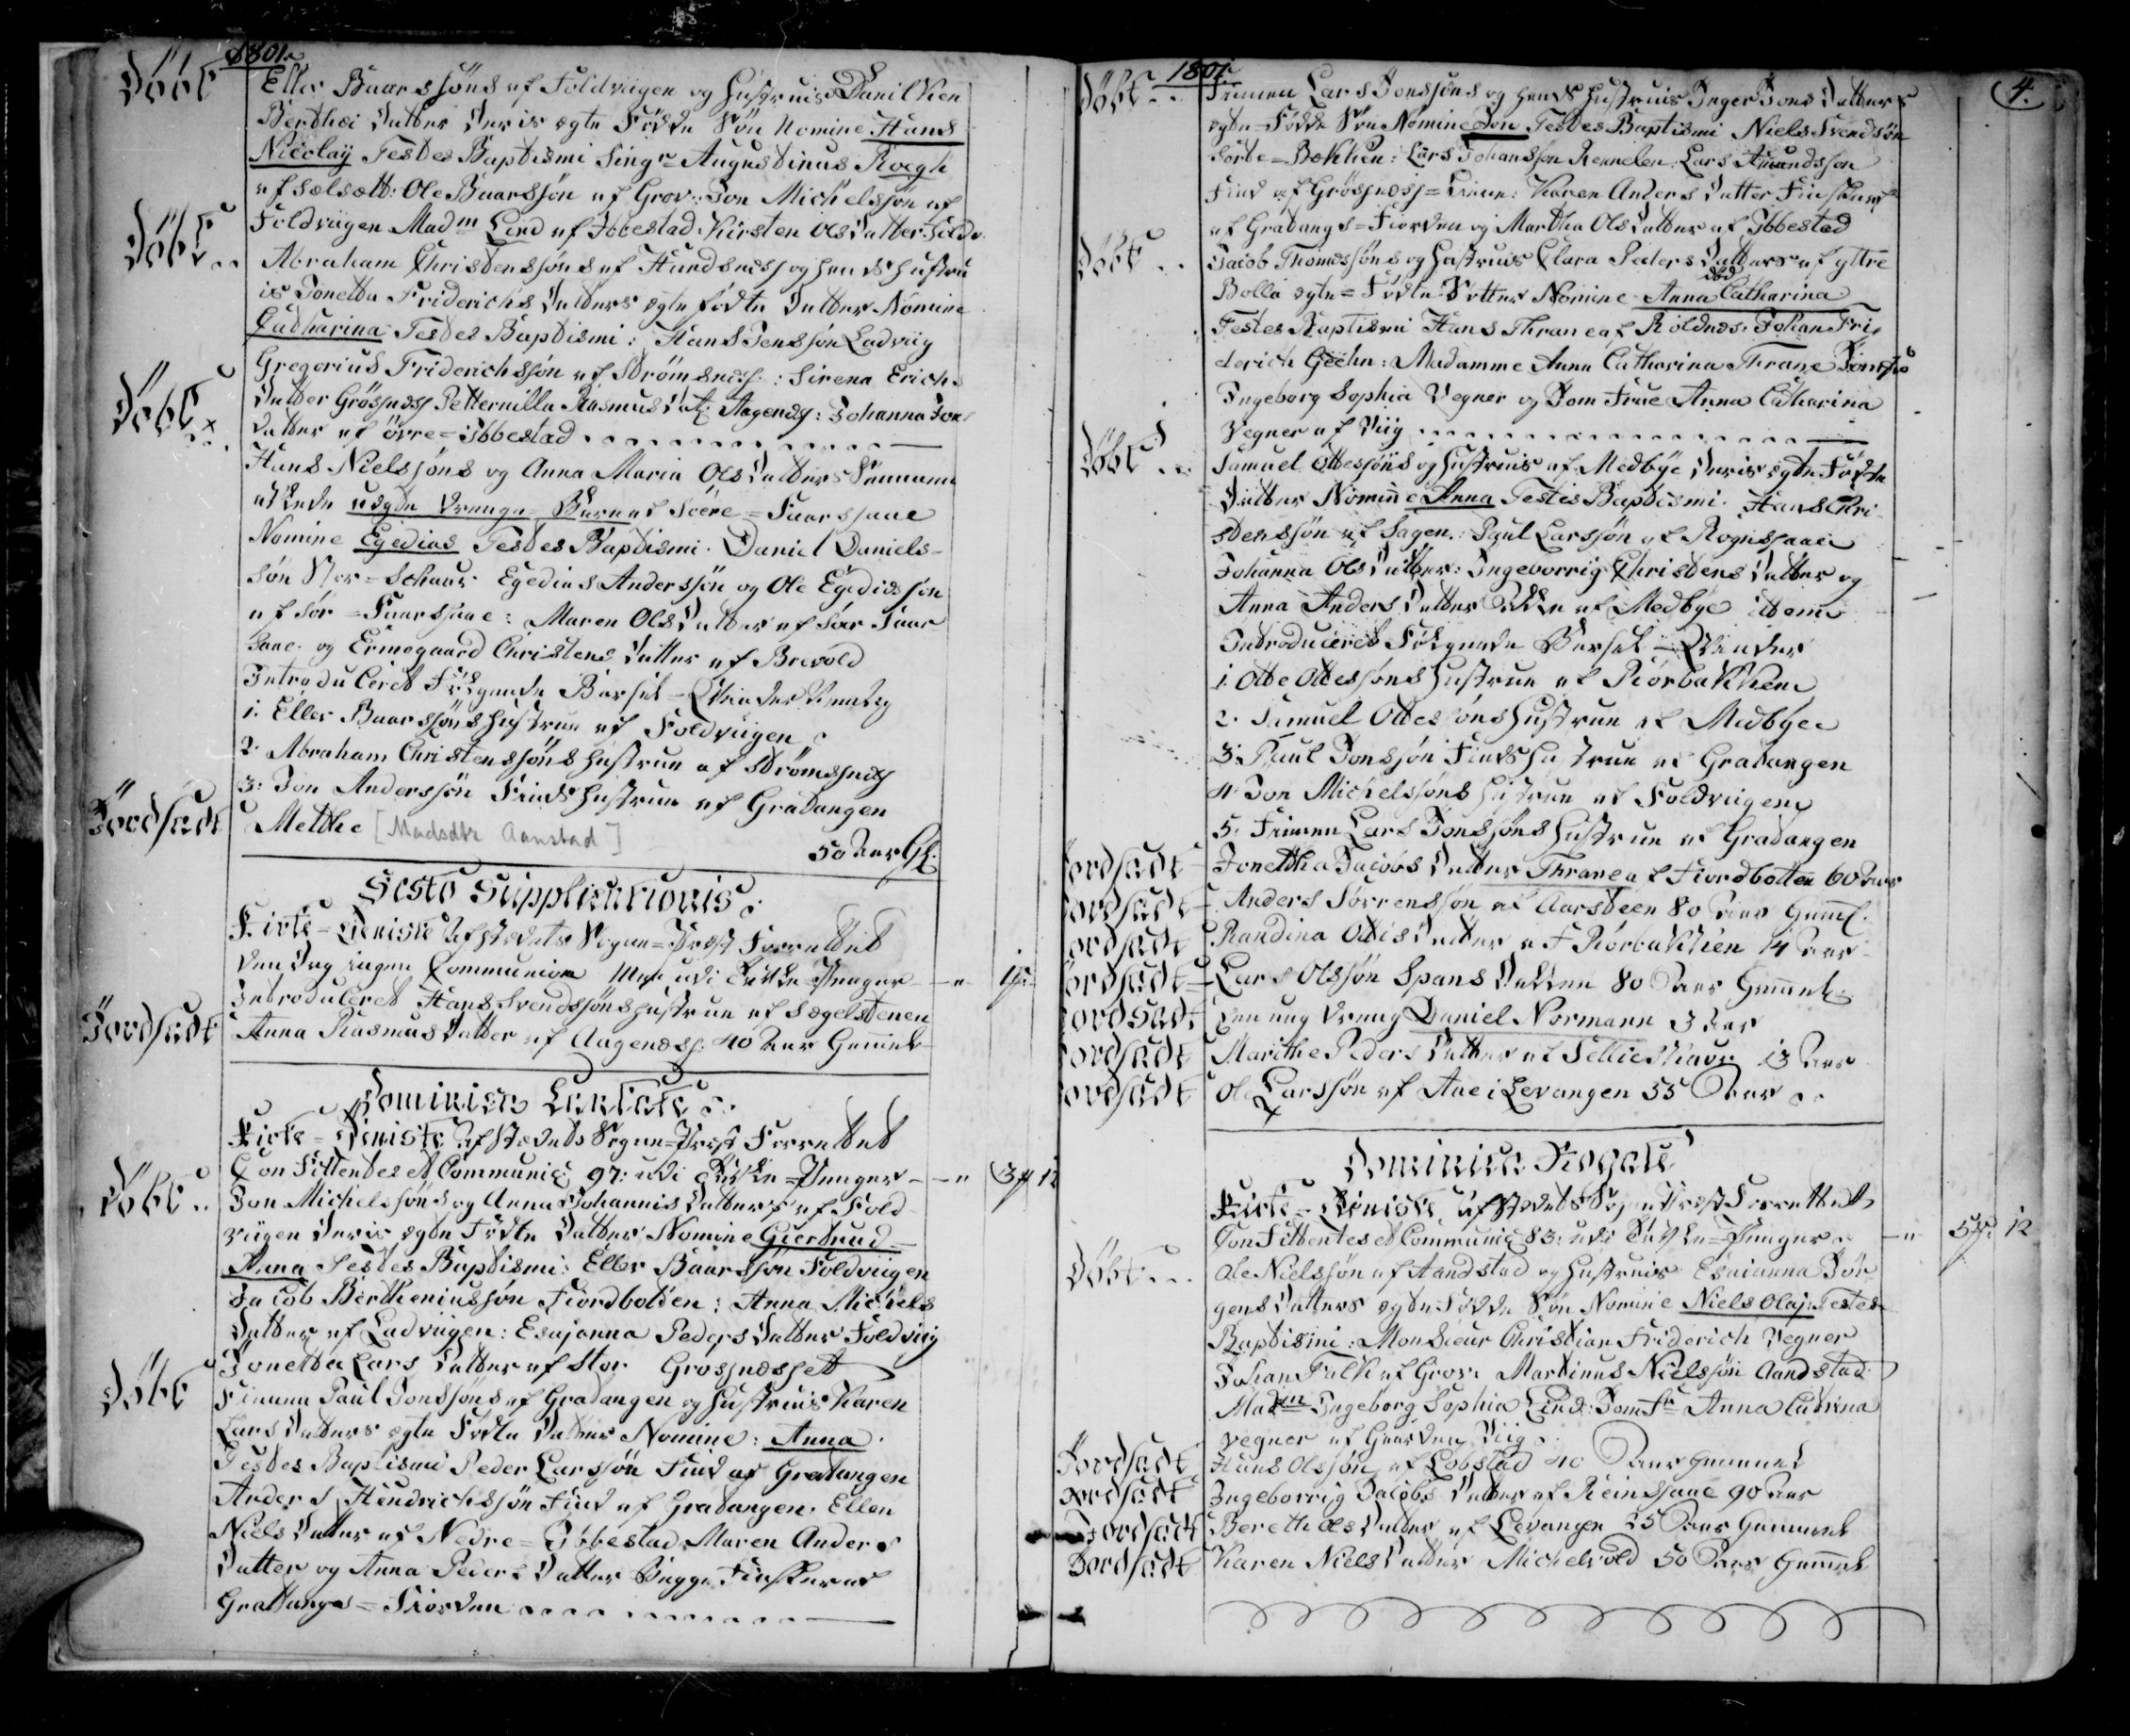 1801.
Döbt Eller Baarssöns af Foldviigen og Hustrues Danilken
Berthei Datter Deris ægte Födde Sön Nomine Hans
Nicolaÿ Testes Baptismi Singr Augustinus Rogh
af Ole Baarssön af Grov: Jon Michelssön af
Foldviigen Madm Lind af Ibbestad. Kirsten Ols Datter Foldv
Döbt Abraham Christenssöns af Hundsness og Hends Hustru
is Jonetta Friderichs Datters ægte födte Datter Nomine
Catharina Testes Baptismi: Hans Jenssön Ladviig
Gregorius Friderichssön af Strömsness: Sirena Erichs
Datter Grösness Petternilla Rasmus Dat: Aagenæs: Johanna Jons
Datter af övre=Ibbestad
Döbt Hans Nielssöns og Anna Maria Ols Datters
uægte Drenge=Barn af =Faarsaae
Nomine Egedias Testes Baptismi. Daniel Daniels-
sön Egedias Anderssön og Ole Egediassön
af Sör=Faarsaae: Maren Ols Datter af Sör Faar
saae. og Ermegaard Christens Datter af Brevold
Introduceret Fölgende Barsel=Qvinder
1. Eller Baarssöns Hustrue af Foldviigen
2. Abraham Christenssöns Hustrue af Strömsness
3: Jon Anderssön Finds Hustrue af Gratangen
Jordsadt Metthe [Madsdtr Aanstad]
50 Aar Gl.
Festo Supplicationis
Kirke=Tieniste af stedets Sogne=Præst Forrettet
den Dag ingen Communion udi Tavle=Penger
Introduceret Hans Svendssöns Hustrue af Sögelstenen
Jordsadt Anna Rasmus Datter af Aagenæss 40 Aar Gammel
Dominica Cantate
Kirke=Tieniste af stedets Sogne=Præst Forrettet
Confittentes et Communic: 97: udi Tavle=Penger 3 12
Döbt Jon Michelssöns og Anna Johannis Datters af Fold
viigen Deris ægte Födte Datter Nomine Giertrud=
Anna Testes Baptismi: Eller Baarssön Foldviigen
Jacob Bertheniussön Fiordbotten: Anna Michels
Datter af Ladviigen: Esajanna Peders Datter Foldviig
Jonetta Lars Datter af Stor Grossnæsset
Döbt Finmn Paul Jonssöns af Gratangen og Hustrues Karen
Lars Datters ægte Födte Datter Nomine: Anna.
Testes Baptismi Peder Larssön Find af Gratangen
Anders Hendrichssön Find af Gratangen. Ellen
Niels Datter af Nedre=Ibbestad Maren Anders
Datter og Anna Peders Datter Begge Finsker af
Gratangs=Fiorden
1801.
4.
Döbt Finmn Lars Jonssöns og Hends Hustrues Inger Jons Datters
ægte=Födde Sön Nomine Jon Testes Baptismi Niels Svendsön
Sörte=Bakken: Lars Johanssön Rennelen: Lars Amundssön
Find af Grösness= : Karen Anders Datter
af Gratangs=Fiorden og Martha Ols Datter af Ibbestad
Döbt Jacob Thomessöns og Hustrues Clara Peders Datters af yttre
Bolla ægte=Födte Datter Nomine Anna Catharina
död
Testes Baptismi Hans Thrane af Roldnes: Johan Fri
derich Geehn: Madamme Anna Catharina Thrane
Ingeborg Sophia Vegner og Jom Frue Anna Catharina
Vegner af Viig
Döbt Samuel Ottessöns og Hustrues af Medbye Deris ægte Födte
Datter Nomine Anna Testes Baptismi. Hans Chri
stenssön af Hagen: Paul Larssön af Rognsaae
Johanna Ols Datter: Ingeborrig Christens Datter og
Anna Anders Datter af Medbye ittem
Introduceret Fölgende Barsel=Qvinder
1. Otte Ottessöns Hustrue af Rörbakken
2. Samuel Ottessöns Hustrue af Medbye
3. Paul Jonssön Finds Hustrue af Gratangen
4. Jon Michelssöns Hustrue af Foldviigen
5. Finmn Lars Jonssöns Hustrue af Gratangen
Jordsadt Jonettha Jacobs Datter Thrane af Fiordbotten 60 Aar
Jordsadt Anders Sörrenssön af Aarsteen 80 Aar Gaml.
Jordsadt Randina Ottis Datter af Rörbakken 14 Aar
Jordsadt Lars Olssön Spans Dakken 80 Aar Gammel
Jordsadt Een ung Dreng Daniel Normann 3 Aar
Jordsadt Marithe Peders Datter af 13 Aar
Jordsadt Ole Larssön af Aae i Levangen 55 Aar
Dominica Rogate
Kirke=Tieniste af stedets Sogne Præst Forrettet
Confittentes et Communic 83: udi Tavle=Penger 5 12
Döbt Ole Nielssön af Aandstad og Hustrues Esaianna Jör
gens Datters ægte Födde Sön Nomine Niels Olaj: Testes
Baptismi: Monsieur Christian Friderich Vegner
Johan Falk af Grov. Martinus Nielssön Aandstad
Madm Ingeborg Sophia Lind: Jomfr Anna Catrina
Vegner af Gaarden Viig
Jordsadt Hans Olssön af Lobstad 40 Aar Gammel
Jordsadt Ingeborrig Jacobs Datter af Reinsaae 90 Aar
Jordsadt Bereth Ols Datter af Levangen 25 Aar Gammel
Jordsadt Karen Niels Datter Michelvold 50 Aar Gammel